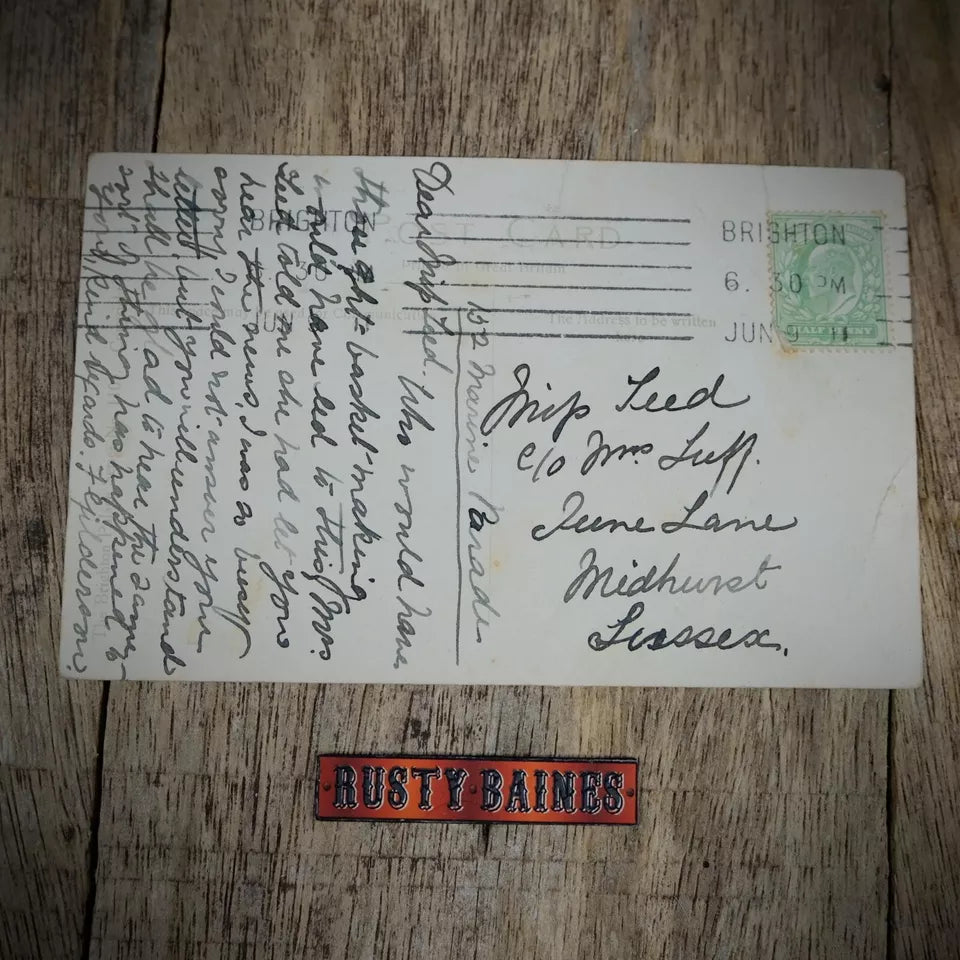 BRIGHTON
6. 30 PM
JUN 9 11
HALF PENNY
BRIGHTON
POST CARD
Great Britain
The Address to be written
Miss Teed
c/o Mrs Luff.
June Lane
Midhurst
Sussex.
152 Marine Parade
Dear Miss Teed. Who would have
thought basket making
would have led to this Mrs.
told me she had let you
hear the news, I was a
sorry I could not answer your
letter, but you will understand
I shall be glad to hear
anything has happened to
you, Kind regards.
RUSTY BAINES